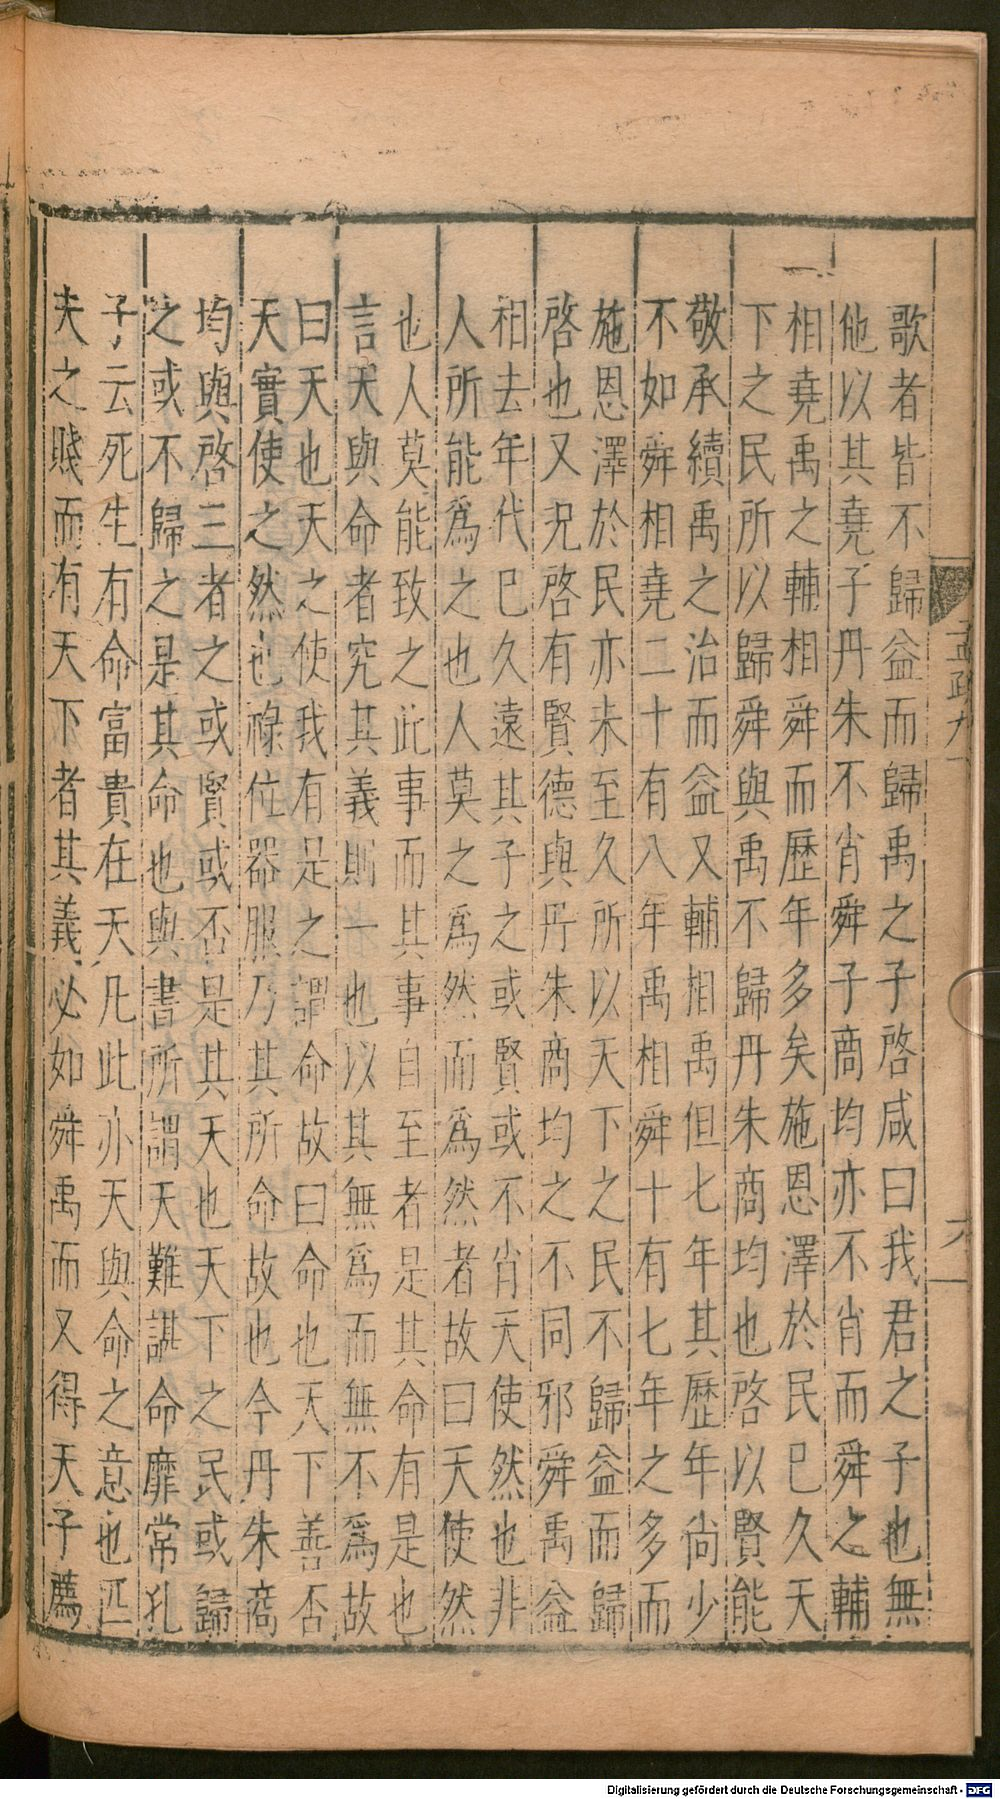 歌者皆不歸益而歸禹之子啓咸曰我君之子也無
他以其堯子丹朱不肖舜子商均亦不肖而舜之輔
相堯禹之輔相舜而歷年多矣施恩澤於民已久天
下之民所以歸舜與禹不歸丹朱商均也啓以賢能
敬承續禹之治而益又輔相禹但七年其歷年尚少
不如舜相堯二十有八年禹相舜十有七年之多而
施恩澤於民亦未至久所以天下之民不歸益而歸
啓也又况啓有賢德與丹朱商均之不同邪舜禹益
相去年代已久遠其子之或賢或不肖天使然也非
人所能爲之也人莫之爲然而爲然者故曰天使然
也人莫能致之此事而其事自至者是其命有是也
言天與命者究其義則一也以其無爲而無不爲故
曰天也天之使我有是之謂命故曰命也天下善否
天實使之然也祿位器服乃其所命故也今丹朱商
均與啓三者之或賢或否是其天也天下之民或歸
之或不歸之是其命也與書所謂天難諶命靡常孔
子云死生有命富貴在天凡此亦天與命之意也匹
夫之賤而有天下者其義必如舜禹而又得天子薦
孟疏九
Digitalisierung gefördert durch die Deutsche Forschungsgemeinschaft - DFG